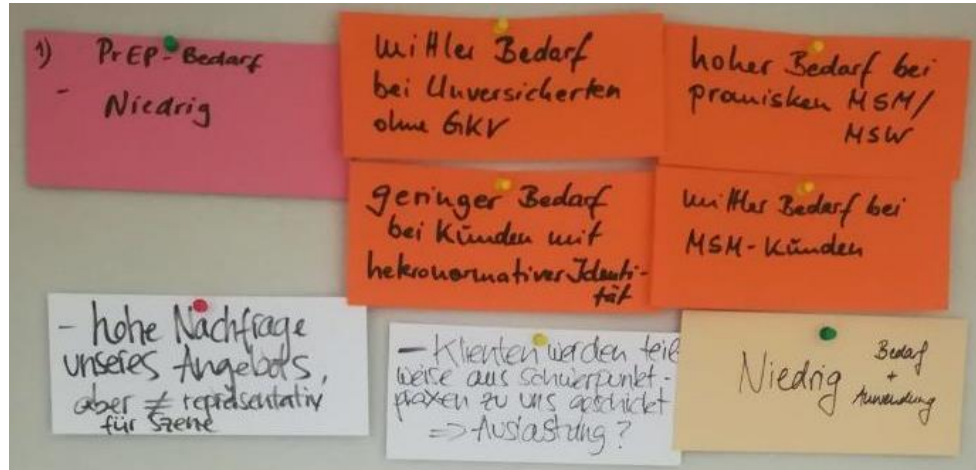 1) PrEP-Bedarf
- Niedrig
mittler Bedarf
bei Unversicherten
ohne GKV
hoher Bedarf bei
promisken MSM/
MSW
geringer Bedarf
bei Kunden mit
heteronormativer Identi-
tät
mittler Bedarf bei
MSM-Kunden
- hohe Nachfrage
unseres Angebots,
aber ≠ repräsentativ
für Szene
- Klienten werden teil
weise aus schwerpunkt-
praxen zu uns geschickt
=> Auslastung?
Niedrig
Bedarf
+
Anwendung